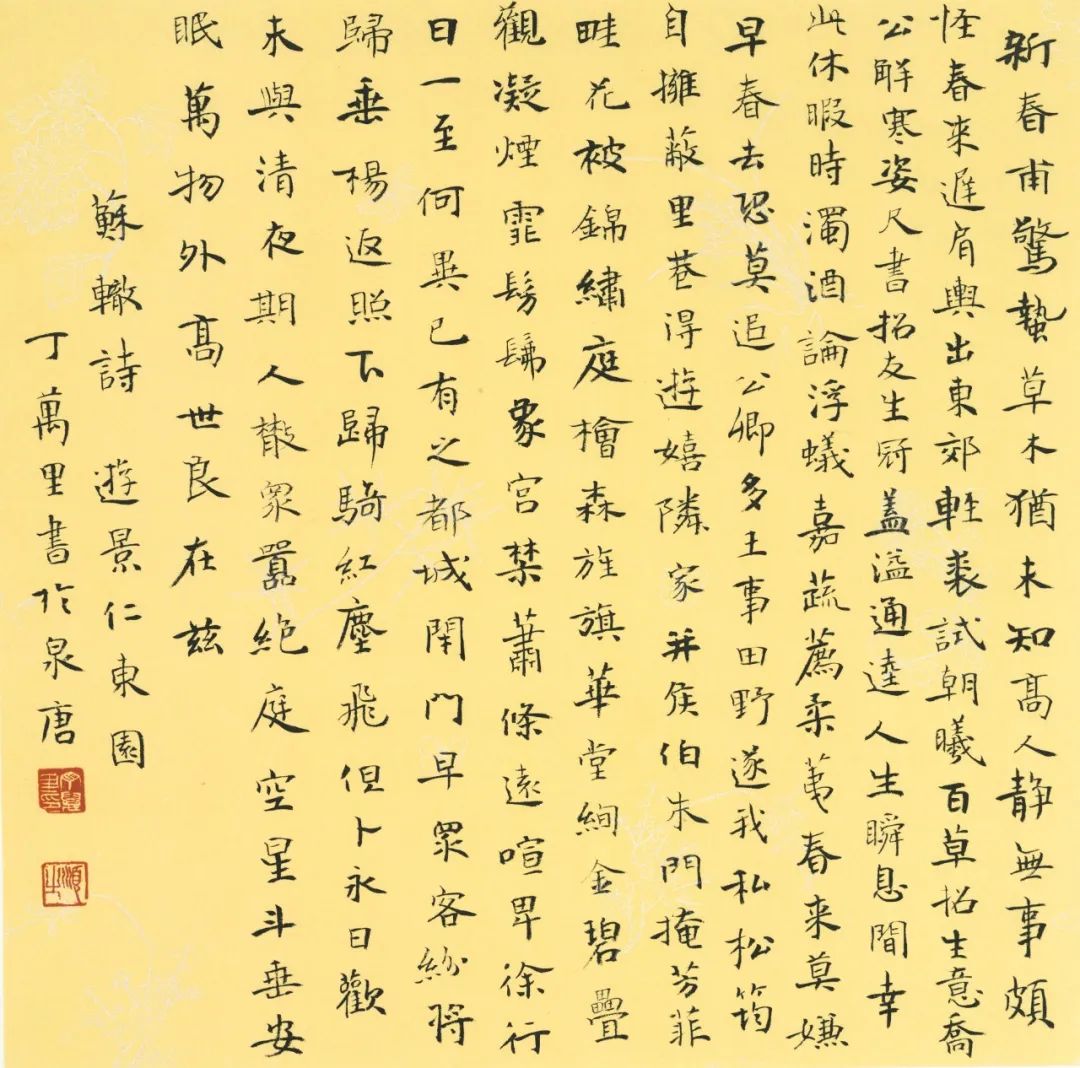 新春甫驚蟄草木猶未知高人静無事頗
怪春來遲肩輿出東郊輕裘試朝曦百草招生意喬
公解寒姿尺書招友生冠蓋溢通逵人生瞬息間幸
此休暇時濁酒論浮蟻嘉蔬薦柔荑春来莫嫌
早春去恐莫追公卿多王事田野遂我私松筠
自擁蔽里巷得遊嬉隣家并侯伯朱門掩芳菲
畦花被錦繡庭檜森旌旗華堂絢金碧疊
觀凝煙霏髣髴象宮禁蕭條遠喧卑徐行
日一至何異已有之都城閉門早眾客紛將
歸垂楊返照下歸騎紅塵飛但卜永日歡
未與清夜期人散眾囂絕庭空星斗垂安
眠萬物外高世良在茲
蘇轍詩 遊景仁東園
丁萬里書於泉唐